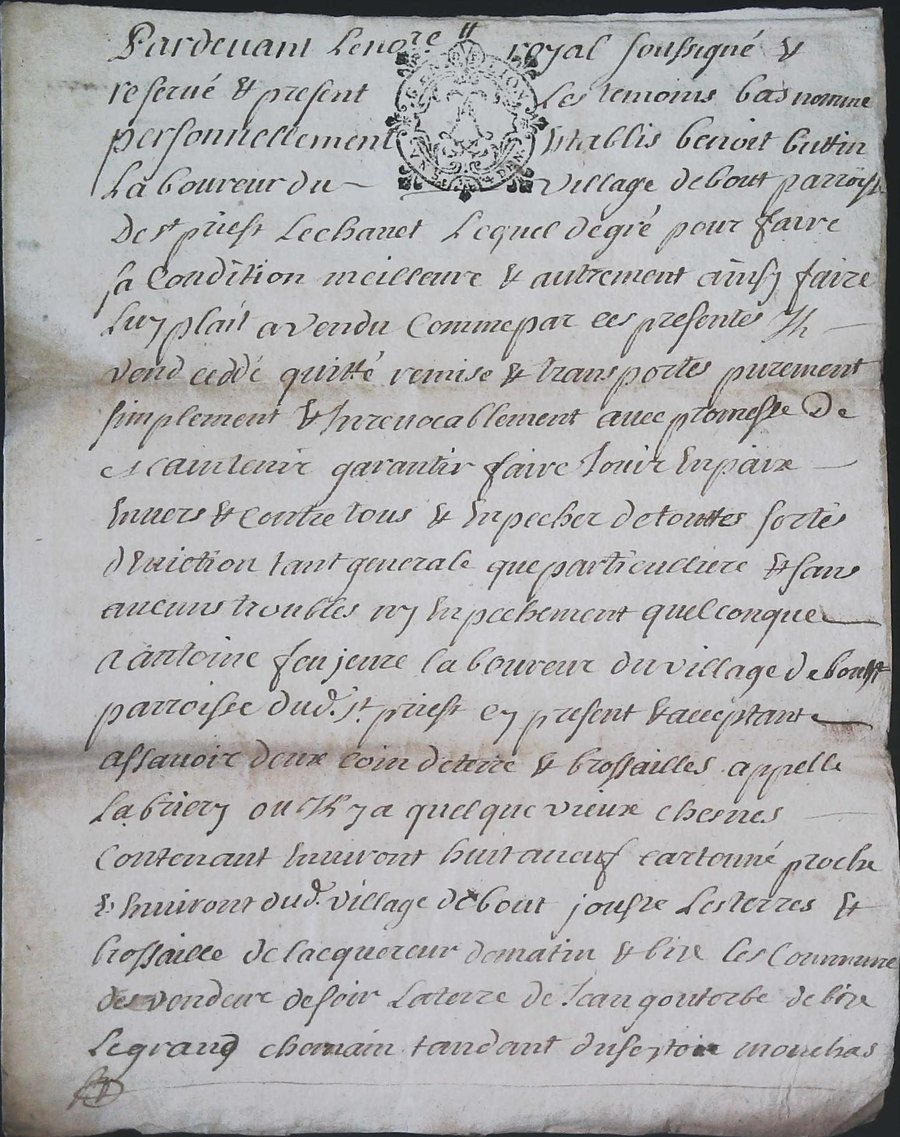 Pardevant Lenore tt royal soussigné &
reservé & present les temoins bas nomme
personnellement Etablis benoit buttin
Laboureur du village debout parroisse
de st priest Lechanet Lequel degré pour faire
sa Condition meilleure & autrement ainsy faire
Luy plait a vendu Comme par ces presentes Il
vend ceddé quitté remise & transportes purement
simplement & Inrevocablement avec promesse De
maintenir garantir faire Jouir En paix
Envers & contre tous & Enpecher de touttes sortes
d'Eviction tant generale que particulliere & sans
aucuns troubles ny Enpechement quelconque
a antoine feujeure laboureur du village debout
parroisse dud. st. priest ey present & acceptant
assavoir deux coin de terre & brossailles appelle
Labriery ou Il y a quelque vieux chesnes
Contenant Environt huit a neuf cartonné proche
& Environt dud. village debout jouste Les terres &
brossaille de lacquereur de matin & bize les Commune
des vendeur de soir La terre de Jean goutorbe de bize
Le grand chemain tandant du mouchas